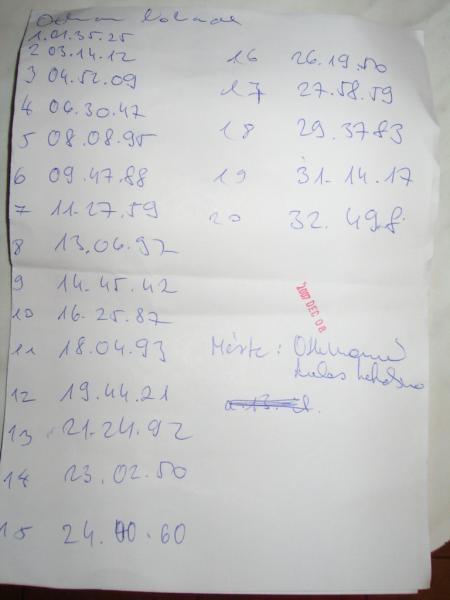 1.01.35.25
2 03.14.12
3 04.52.09
4 06.30.47
5 08.08.95
6 09.47.88
7 11.27.59
8 13.06.97
9 14.45.42
10 16.25.87
11 18.04.93
12 19.44.21
13 21.24.92
14 23.02.50
15 24.40.60
16 26.19.50
17 27.58.59
18 29.37.83
19 31.14.17
20 32.498.
2007 DEC 08
Mérte: